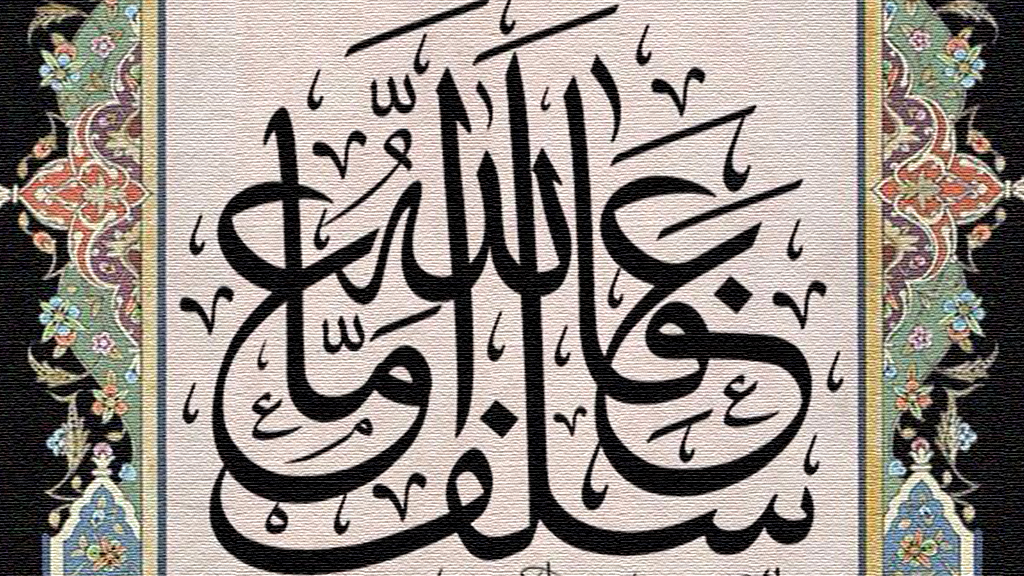 عَفَا اللَّهُ عَمَّا سَلَفَ